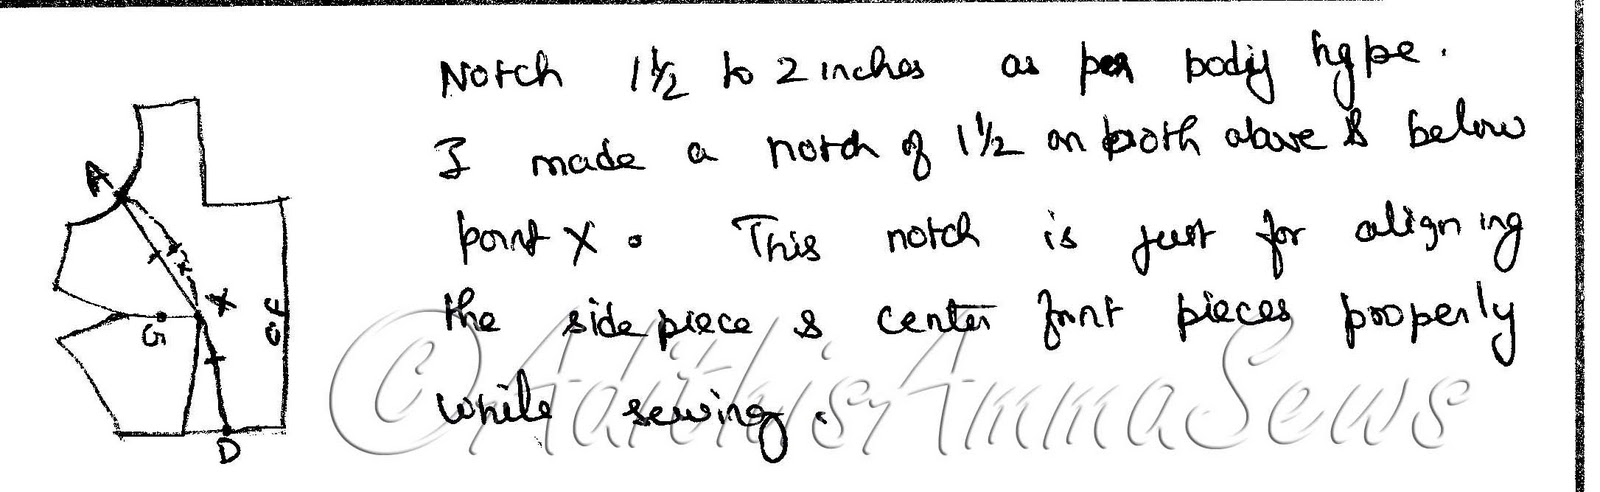 Notch 1½ to 2 inches as per body type.
I made a notch of 1½ on both above & below
point X. This notch is just for aligning
the side piece & center front pieces properly
while sewing.
A
X
G
CF
D
©AdithisAmmaSews